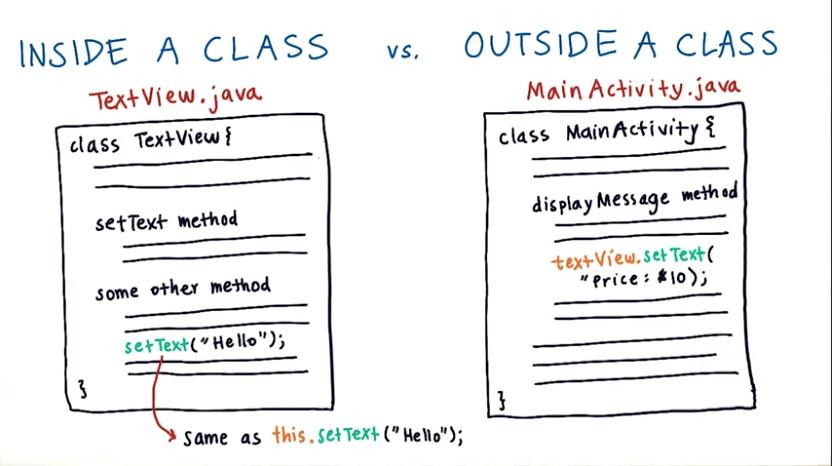 INSIDE A CLASS vs. OUTSIDE A CLASS
TextView.java
class TextView {
setText method
some other method
setText("Hello");
}
same as this.setText("Hello");
MainActivity.java
class MainActivity {
displayMessage method
textView.setText(
"Price: $10);
}